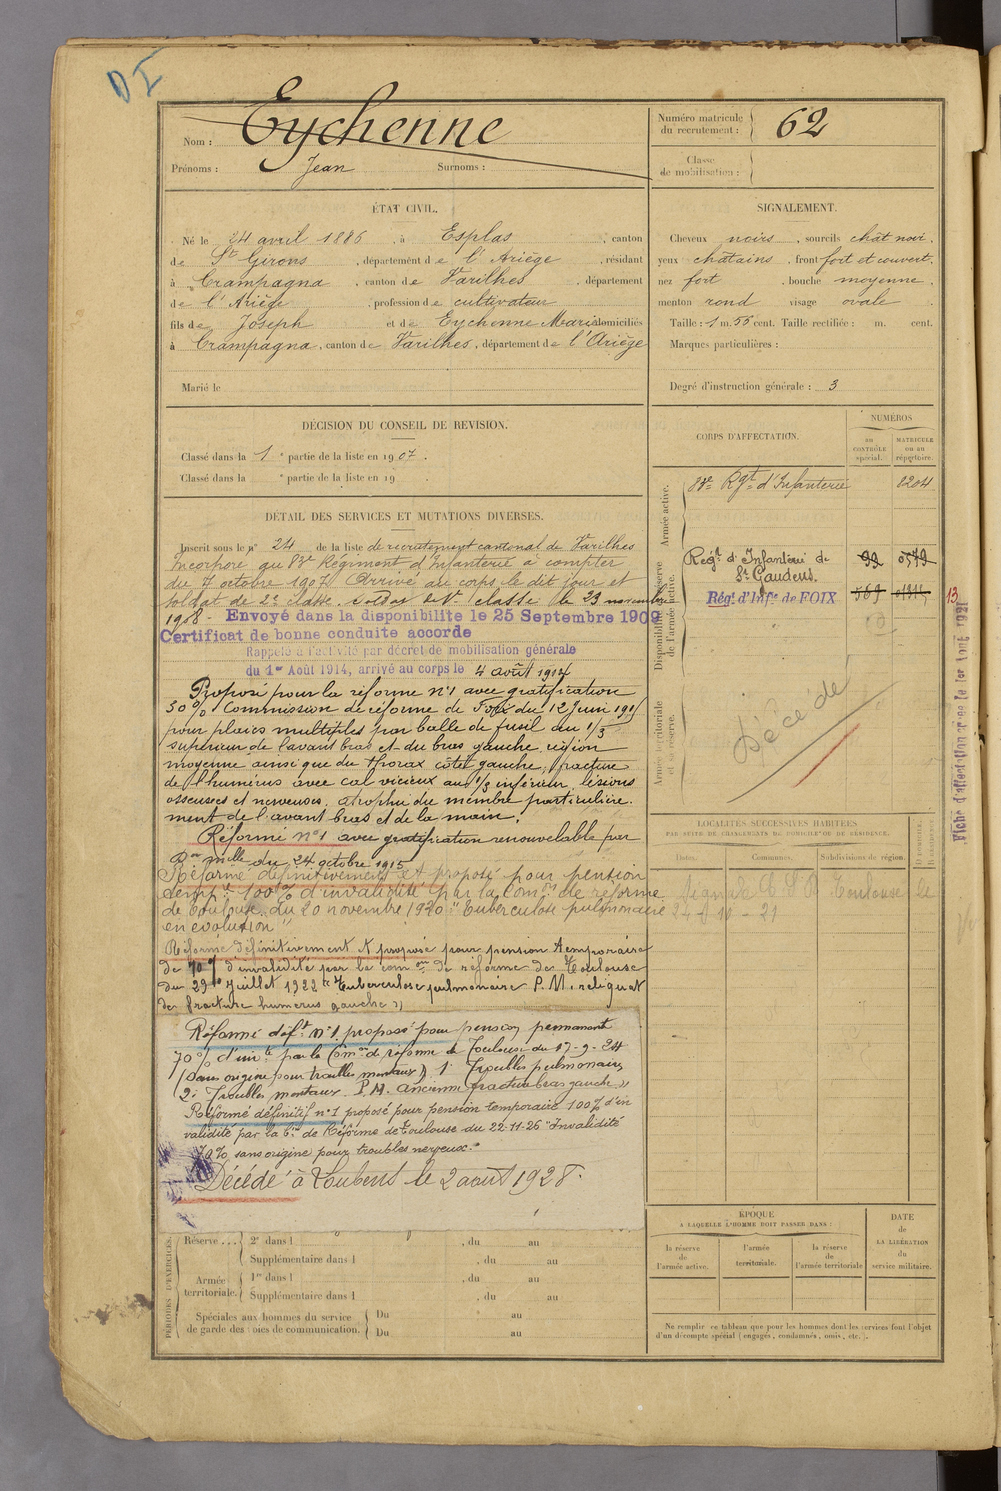 D I
Nom : Eychenne
Prénoms : Jean Surnoms :
Numéro matricule
du recrutement : 62
Classe
de mobilisation :
ÉTAT CIVIL.
Né le 24 avril 1886, à Esplas, canton
de St Girons, département de l'Ariège, résidant
à Crampagna, canton de Varilhes, département
de l'Ariège, profession de cultivateur
fils de Joseph et de Eychenne Marie domiciliés
à Crampagna, canton de Varilhes, département de l'Ariège
Marié le
SIGNALEMENT.
Cheveux noirs, sourcils chat noir.
yeux chatains, front fort et couvert.
nez fort, bouche moyenne,
menton rond visage ovale
Taille : 1 m. 55 cent. Taille rectifiée : m. cent.
Marques particulières :
Degré d'instruction générale : 3
DÉCISION DU CONSEIL DE REVISION.
Classé dans la 1 e partie de la liste en 1907.
Classé dans la e partie de la liste en 19 .
DÉTAIL DES SERVICES ET MUTATIONS DIVERSES.
Inscrit sous le n° 24 de la liste de recrutement cantonal de Varilhes
Incorporé au 83e Régiment d'Infanterie à compter
du 7 octobre 1907. Arrivé au corps le dit jour et
soldat de 2e classe. soldat de 1re classe le 23 novembre
1908 - Envoyé dans la disponibilité le 25 Septembre 1909
Certificat de bonne conduite accordé
Rappelé à l'activité par décret de mobilisation générale
du 1er Août 1914, arrivé au corps le 4 août 1914
Proposé pour la réforme n°1 avec gratification
30% Commission de réforme de Foix du 12 Juin 1915
pour plaies multiples par balle de fusil au 1/3
supérieur de l'avant bras et du bras gauche, région
moyenne ainsi que du thorax côté gauche, fracture
de l'humérus avec cal vicieux au 1/3 inférieur, lésions
osseuses et nerveuses, atrophie du membre particulière-
ment de l'avant bras et de la main.
Réformé n°1 avec gratification renouvelable par
Don mlle du 24 octobre 1915
Réformé définitivement et proposé pour pension
temp.re 100% d'invalidité par la Com.on de réforme
de Toulouse du 20 novembre 1920 "Tuberculose pulmonaire
en évolution"
Réformé définitivement et proposé pour pension temporaire
de 70% d'invalidité par la com on de réforme de Toulouse
du 29 Juillet 1922 "Tuberculose pulmonaire P.M. reliquat
de fracture humérus gauche"
Réformé déf.t n°1 proposé pour pension permanente
70% d'inv.té par la Com.on de réforme de Toulouse du 17-9-24
(sans origine pour troubles mentaux) 1° Troubles pulmonaires
2° Troubles mentaux P.M. ancienne fracture bras gauche"
Réformé définitif n°1 proposé pour pension temporaire 100% d'in
validité par la C.on de Réforme de Toulouse du 22-11-26 "Invalidité
70% sans origine pour troubles nerveux."
Décédé à Loubens le 2 août 1928.
PÉRIODES D'EXERCICES.
Réserve ... 2e dans l , du au
Supplémentaire dans l , du au
Armée territoriale. 1re dans l , du au
Supplémentaire dans l , du au
Spéciales aux hommes du service
de garde des voies de communication. Du au
Du au
CORPS D'AFFECTATION.
NUMÉROS
au
CONTRÔLE
spécial.
MATRICULE
ou au
répertoire.
Armée active.
83e Rgt d'Infanterie 8204
Disponibilité et réserve
de l'armée active.
Régt d'Infanterie de 99 0579
St Gaudens.
Régt d'Infie de FOIX 569
13
Armée territoriale
et sa réserve.
Décédé
Fiche d'affectation créée le 1er Août 1921
LOCALITÉS SUCCESSIVES HABITÉES
PAR SUITE DE CHANGEMENTS DE DOMICILE OU DE RÉSIDENCE.
Dates. Communes. Subdivisions de région. D domicile. R résidence.
Signalé C S R Toulouse le
24-10-21
ÉPOQUE
A LAQUELLE L'HOMME DOIT PASSER DANS :
la réserve
de
l'armée active.
l'armée
territoriale.
la réserve
de
l'armée territoriale
DATE
de
LA LIBÉRATION
du
service militaire.
Ne remplir ce tableau que pour les hommes dont les services font l'objet
d'un décompte spécial (engagés, condamnés, omis, etc.).